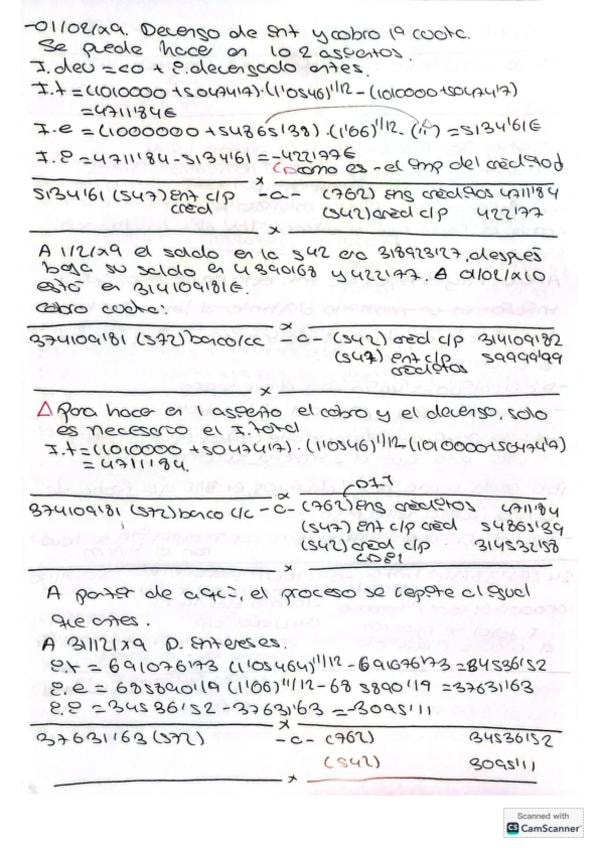 -01/02/x9. Devengo de Int y cobro 1ª cuota.
Se puede hacer en 1 o 2 asientos.
I. dev = CO + I. devengado antes.
I.t = (1010000 + 5047'417) · (1'0546)^1/12 - (1010000 + 5047'417)
= 4711'84€
I.e = (1000000 + 54865'138) · (1'06)^1/12 - (") = 5134'61€
I. I = 4711'84 - 5134'61 = -422'77€
como es - el imp del crédito↓
5134'61 (547) Int c/p créd -a- (762) Ing créditos 4711'84
(542) créd c/p 422'77
x
A 1/2/x9 el saldo en la 542 era 318923'27, después
baja su saldo en 4390'68 y 422'77. A 01/02/x10
está en 314109'81€.
Cobro cuota:
x
374109'81 (572) banco c/c -a- (542) créd c/p 314109'82
(547) Int c/p créditos 59999'99
x
△ Para hacer en 1 asiento el cobro y el devengo, solo
es necesario el I. total
I.t = (1010000 + 5047'417) · (1'0546)^1/12 - (1010000 + 5047'417)
= 4711'84.
x
374109'81 (572) banco c/c -a- (762) Ing créditos 4711'84
(547) Int c/p créd 54865'39
(542) créd c/p 314532'58
x
A partir de aquí, el proceso se repite al igual
que antes.
A 31/12/x9 D. Intereses.
I.t = 691076'73 (1'05464)^11/12 - 691076'73 = 34536'52
I.e = 685890'19 (1'06)^11/12 - 685890'19 = 37631'63
I.I = 34536'52 - 37631'63 = -3095'11
x
37631'63 (572) -a- (762) 34536'52
(542) 3095'11
x
Scanned with
CS CamScanner